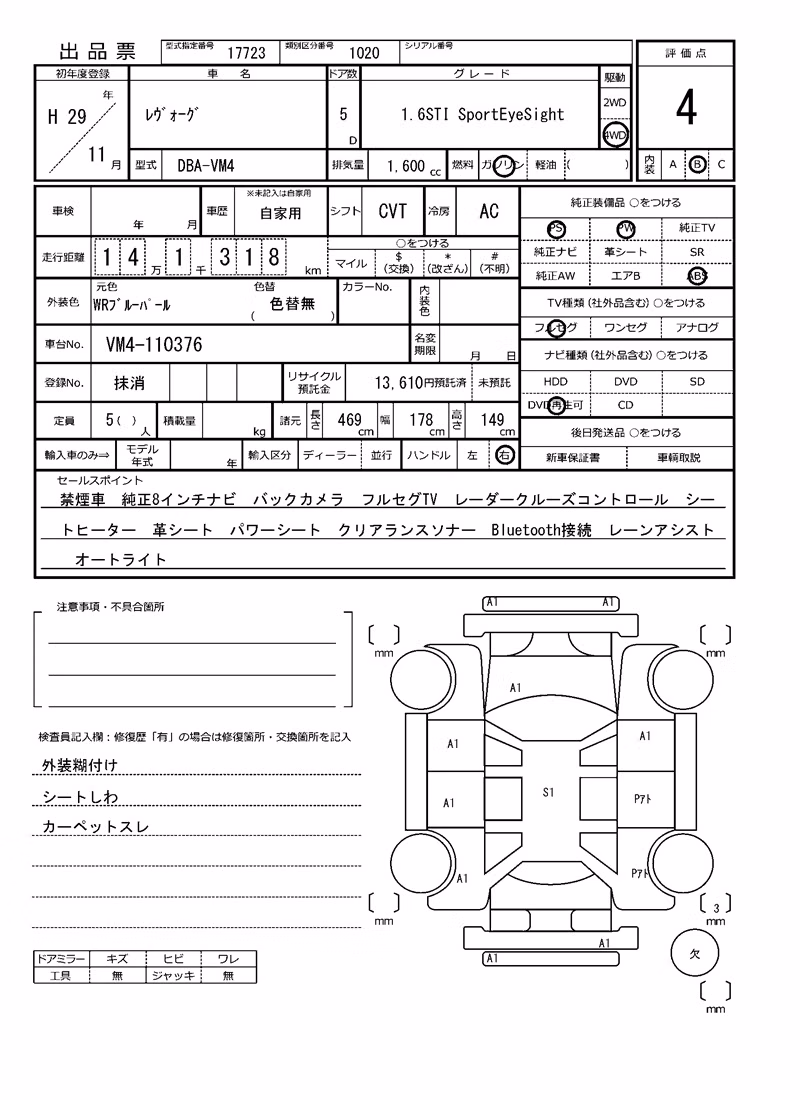 出品票 型式指定番号 17723 類別区分番号 1020 シリアル番号
評価点
4
内装 A B C
初年度登録 車名 ドア数 グレード 駆動
H 29 年 11 月 ﾚｳﾞｫｰｸﾞ 5 D 1.6STI SportEyeSight 2WD
4WD
型式 DBA-VM4 排気量 1,600 cc 燃料 ガソリン 軽油 ( )
車検 年 月 車歴 ※未記入は自家用 自家用 シフト CVT 冷房 AC
走行距離 1 4 万 1 千 3 1 8 km ○をつける
マイル $(交換) *(改ざん) #(不明)
外装色 元色 WRﾌﾞﾙｰﾊﾟｰﾙ 色替 色替無 ( ) カラーNo. 内装色
車台No. VM4-110376 名変期限 月 日
登録No. 抹消 リサイクル預託金 13,610円預託済 未預託
定員 5( )人 積載量 kg 諸元 長さ 469 cm 幅 178 cm 高さ 149 cm
輸入車のみ⇒ モデル年式 年 輸入区分 ディーラー 並行 ハンドル 左 右
純正装備品 ○をつける
PS PW 純正TV
純正ナビ 革シート SR
純正AW エアB ABS
TV種類(社外品含む)○をつける
フルセグ ワンセグ アナログ
ナビ種類(社外品含む)○をつける
HDD DVD SD
DVD再生可 CD
後日発送品 ○をつける
新車保証書 車輌取説
セールスポイント
禁煙車 純正8インチナビ バックカメラ フルセグTV レーダークルーズコントロール シー
トヒーター 革シート パワーシート クリアランスソナー Bluetooth接続 レーンアシスト
オートライト
注意事項・不具合箇所
検査員記入欄:修復歴「有」の場合は修復箇所・交換箇所を記入
外装糊付け
シートしわ
カーペットスレ
ドアミラー キズ ヒビ ワレ
工具 無 ジャッキ 無
A1 A1
mm mm
A1
A1 A1
A1 S1 Pｱﾄ
A1 Pｱﾄ
mm 3 mm
A1
A1 欠
mm